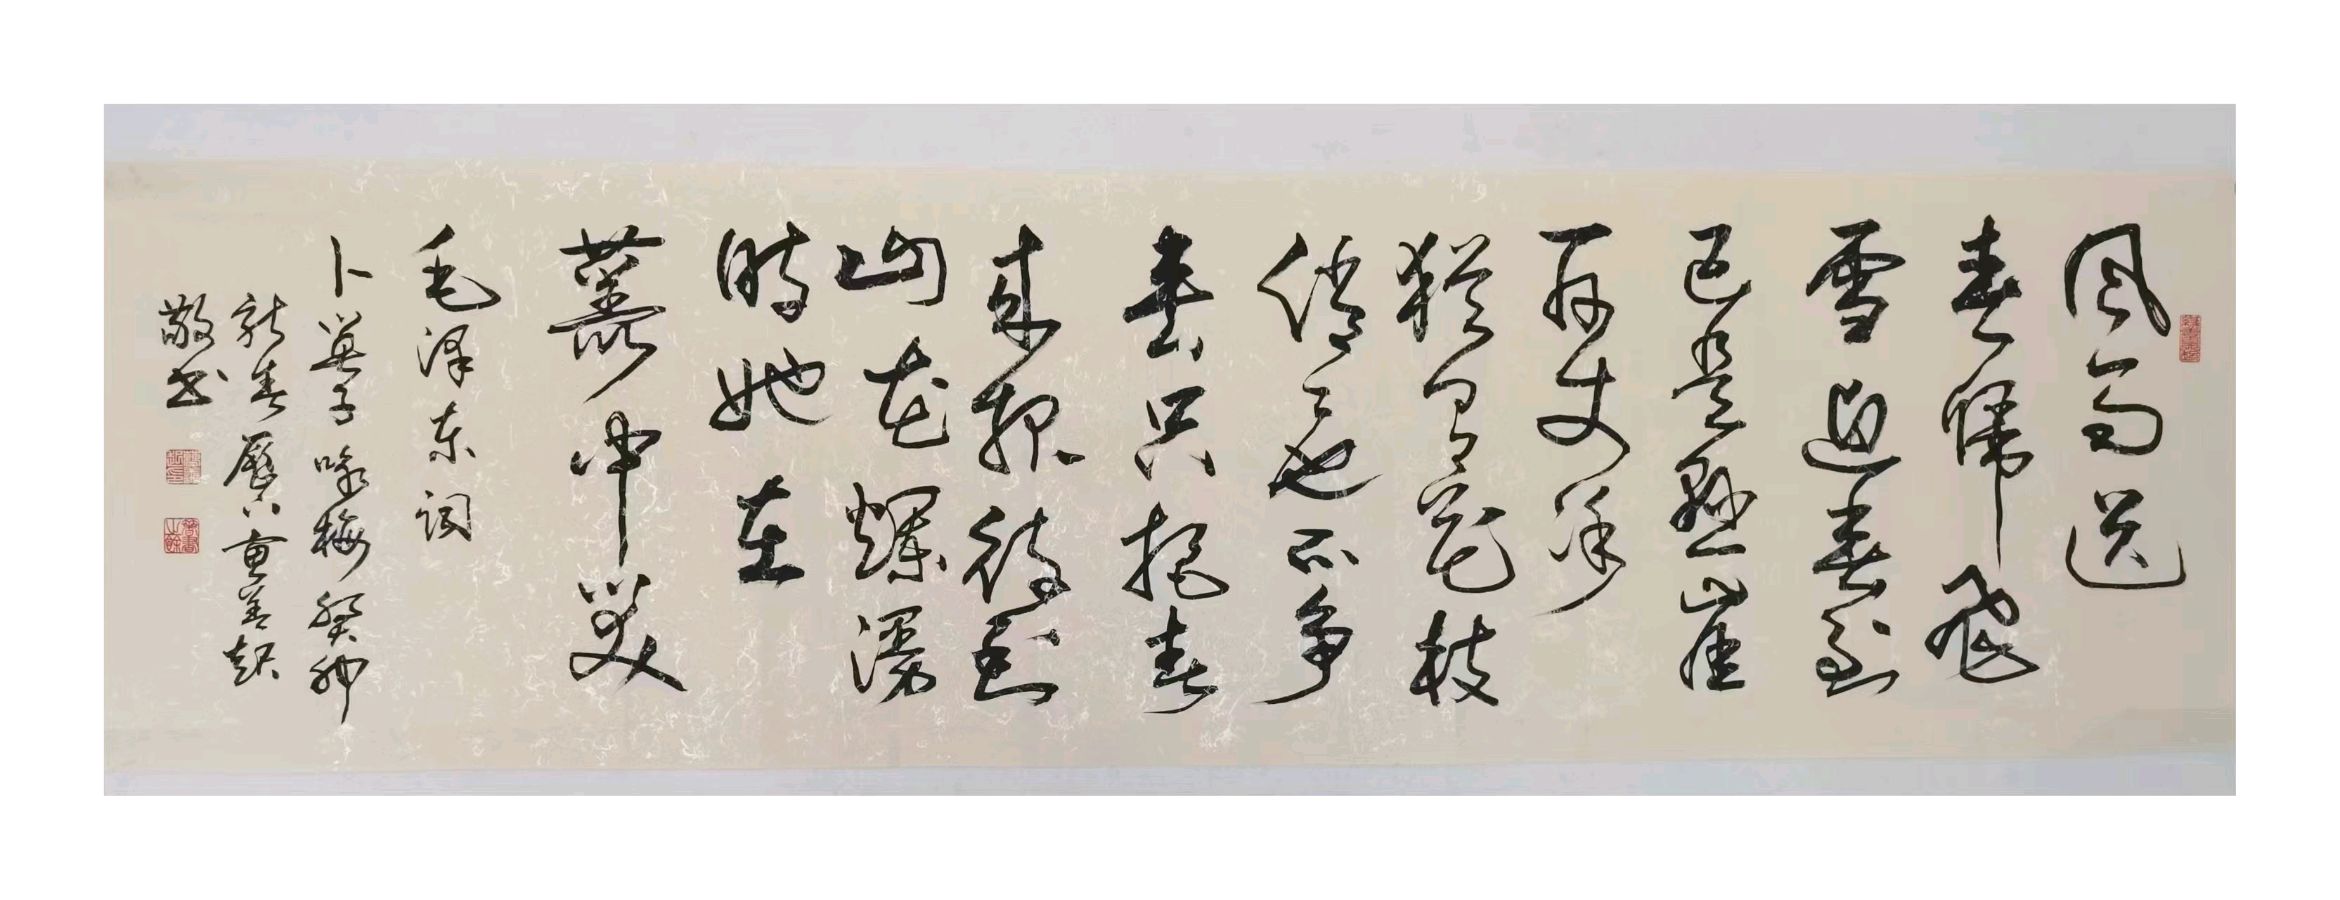 风雨送
春歸飛
雪迎春到
已是悬崖
百丈冰
犹有花枝
俏々也不争
春只把春
来报待到
山花爛漫
时她在
叢中笑
毛泽东词
卜算子咏梅癸卯
新春
敬书